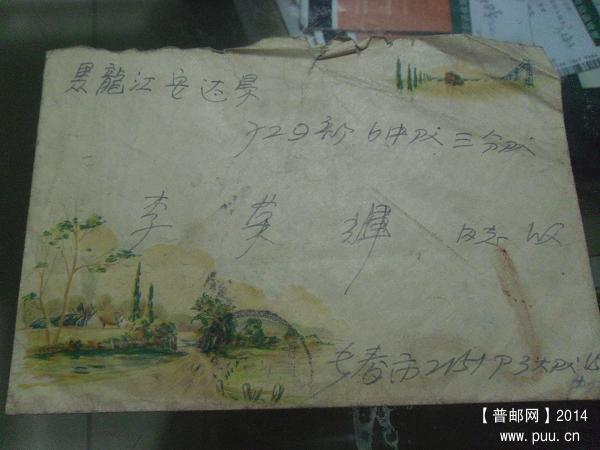 黑龍江安达县
729部6中队三分队
李英輝 同志收
长春市2151P3大队
【普邮网】2014
www.puu.cn